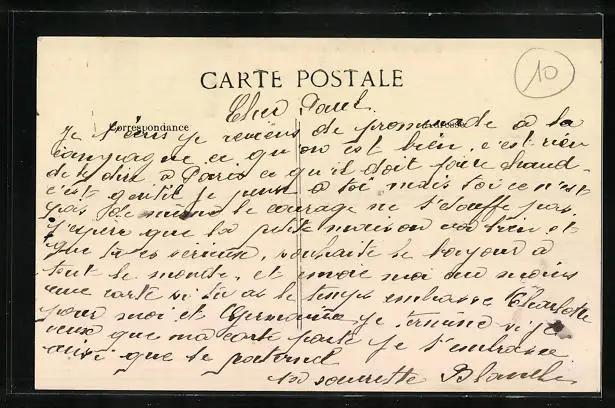 10
CARTE POSTALE
Correspondance
Cher Paul.
Je t'écris je reviens de promenade à la
campagne ce qu'on est bien, c'est rien
de le dire à Paris ce qu'il doit faire chaud
c'est gentil je pense à toi mais toi ce n'est
pas de même le courage ne t'étouffe pas.
J'espère que la petite maison va bien et
que tu es sérieux, souhaite le bonjour à
tout le monde, et envoie moi au moins
une carte si tu as le temps embrasse Charlotte
pour moi et Germaine je termine si je
veux que ma carte parte je t'embrasse
ainsi que le paternel
ta sourette Blanche